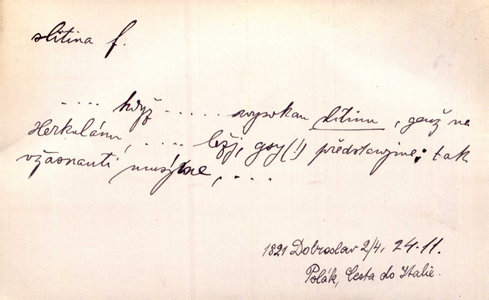 slitina f.
.... když ..... wysokau litinu, genž na
Herkulánu, .... ležj, gsy(!) předstawjme; tak
vžasnauti musjme, ...
1821 Dobroslav 2/4, 24.11.
Polák, Cesta do Italie.